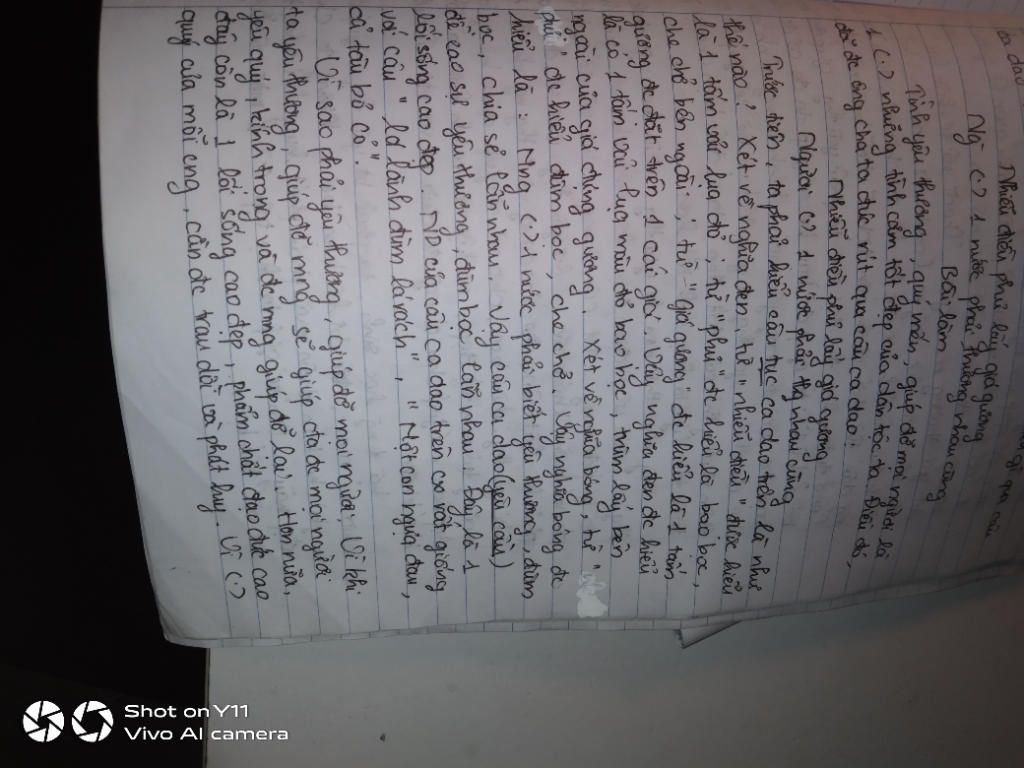 ca dao
gì qua câu
Nhiễu điều phủ lấy giá gương
Ng (.) 1 nước phải thương nhau cùng
Bài làm
Tình yêu thương, quý mến, giúp đỡ mọi người là
1 (.) những tình cảm tốt đẹp của dân tộc ta. Điều đó,
đã đc ông cha ta đúc rút qua câu ca dao:
Nhiễu điều phủ lấy giá gương
Người (.) 1 nước phải thg nhau cùng
Trước tiên, ta phải hiểu câu tục ca dao trên là như
thế nào? Xét về nghĩa đen, từ "nhiễu điều" được hiểu
là 1 tấm vải lụa đỏ; từ "phủ" đc hiểu là bao bọc,
che chở bên ngoài; từ "giá gương" đc hiểu là 1 tấm
gương đc đặt trên 1 cái giá. Vậy nghĩa đen đc hiểu
là có 1 tấm vải lụa màu đỏ bao bọc, trùm lấy bên
ngoài của giá đựng gương. Xét về nghĩa bóng, từ "
phủ" đc hiểu đùm bọc, che chở. Vậy nghĩa bóng đc
hiểu là: Ng (.) 1 nước phải biết yêu thương, đùm
bọc, chia sẻ lẫn nhau. Vậy câu ca dao (yêu cầu)
đề cao sự yêu thương, đùm bọc lẫn nhau. Đây là 1
lối sống cao đẹp. ND của câu ca dao trên cx rất giống
với câu "Lá lành đùm lá rách", "Một con ngựa đau,
cả tàu bỏ cỏ".
Vì sao phải yêu thương, giúp đỡ mọi người? Vì khi
ta yêu thương, giúp đỡ mng sẽ giúp cta đc mọi người
yêu quý, kính trọng và đc mng giúp đỡ lại. Hơn nữa,
đây còn là 1 lối sống cao đẹp, phẩm chất đạo đức cao
quý của mỗi ng, cần đc trau dồi và phát huy. Vì (.)